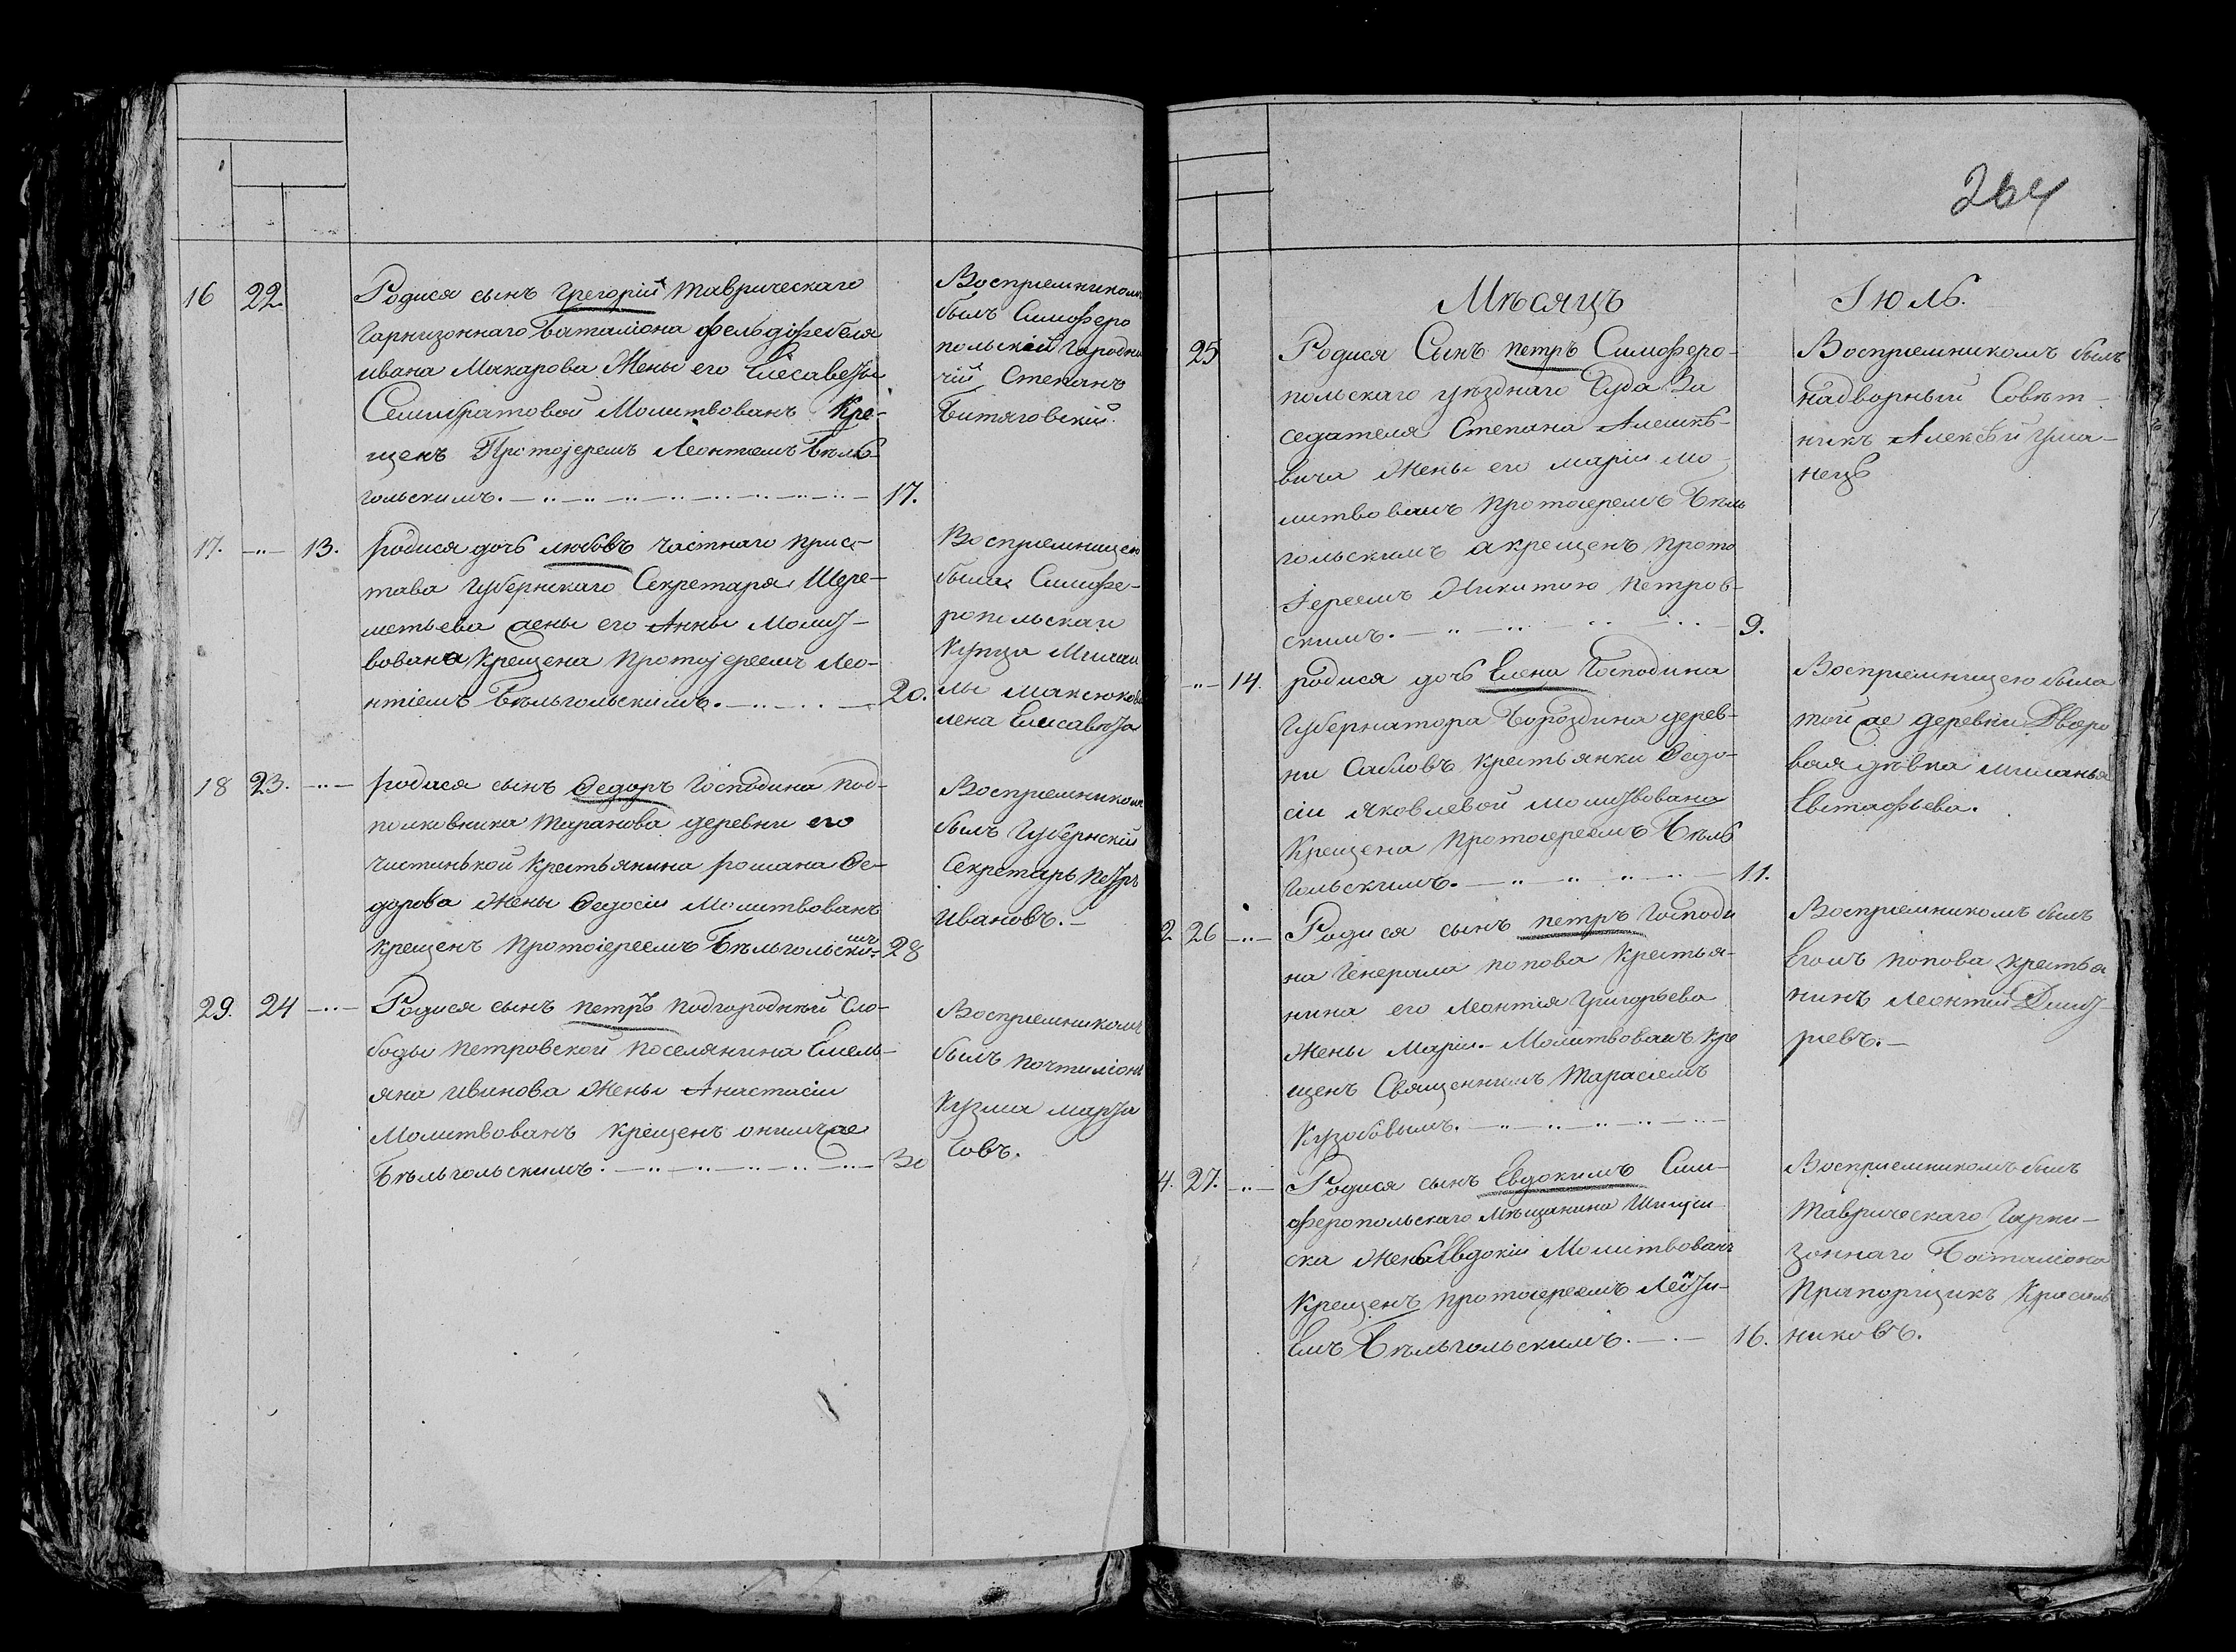 16 22 Родися сынъ Григорій Таврическаго
Гарнизоннаго баталіона фельдфебеля
ивана Макарова Жены его Елисаветы
Молитвованъ Кре-
щенъ Протоjереемъ Леонтіемъ Бѣль-
гольскимъ. 17.
Воспріемникомъ
былъ Симферо
польскій Городни
чій Степанъ
Битяговскій.
17. 13. родися дочь любовь частнаго прис-
тава Губернскаго Секретаря Шере-
метьева жены его Анны Молит-
вована Крещена протоjереемъ Лео-
нтіемъ Бѣльгольскимъ. 20.
Воспріемницею
была Симфе-
ропольскаго
Купца
лы
жена Елисавета
18 23. родися сынъ Федоръ Господина под-
полковника Таранова деревни его
чистинькой крестьянина романа Фе-
дорова Жены Федосіи Молитвованъ
крещенъ протоіереемъ Бѣльгольскимъ 28
Воспріемникомъ
былъ Губернскій
Секретарь петръ
Ивановъ.
29. 24 Родися сынъ петръ подгородней Сло-
боды петровской поселянина Емель-
яна иванова Жены Анастасіи
Молитвованъ крещенъ онимже
Бѣльгольскимъ. 30
Воспріемникомъ
былъ почтиліонъ
Кузма
совъ.
264
Мѣсяцъ Іюль.
25 Родися Сынъ петръ Симферо-
польскаго уѣзднаго Суда За
седателя Степана Алешке-
вича Жены его маріи мо-
литвованъ протоіереемъ Бѣль
гольскимъ акрещенъ прото
jереемъ Никитою петров-
скимъ. 9.
Воспріемникомъ былъ
надворный Совѣт-
никъ Алексѣй Ума-
нецъ
14. родися дочь Елена Господина
Губернатора Бороздина дерев-
ни Сабловъ крестьянки Федо-
сіи яковлевой молитвована
крещена протоіереемъ Бѣль
гольскимъ. 11.
Воспріемницею была
той же деревни Дворо
вая дѣвка миланья
Евстафьева.
2 26 Родися сынъ петръ Господи
на Генерала попова Крестья-
нина его Леонтія Григорьева
Жены Маріи. Молитвованъ кре
щенъ Священникомъ Тарасіемъ
Кузобовымъ.
Воспріемникомъ былъ
Егожъ попова крестья
нинъ Леонтій Дмит-
ріевъ.
4. 27. Родися сынъ Евдокимъ Сим-
феропольскаго Мѣщанина
ска Жены Евдокіи Молитвованъ
Крещенъ протоіереемъ Леонти-
емъ Бѣльгольскимъ. 16.
Воспріемникомъ былъ
Таврическаго Гарни-
зоннаго Баталіона
Прапорщикъ Красиль
никовъ.